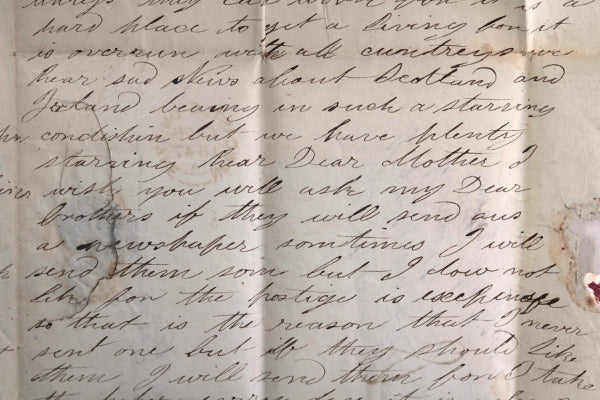 hard place to get a living for it
is overrun with all cuntreys we
hear sad News about Scotland and
Ireland beaing in such a starving
condishin but we have plenty
starving hear Dear Mother I
wish you will ask my Dear
brothers if they will send ous
a newspaper somtimes I will
send them som but I dow not
like for the postige is exechpensife
so that is the reason that I never
sent one but if they should like
them I will send them for I take